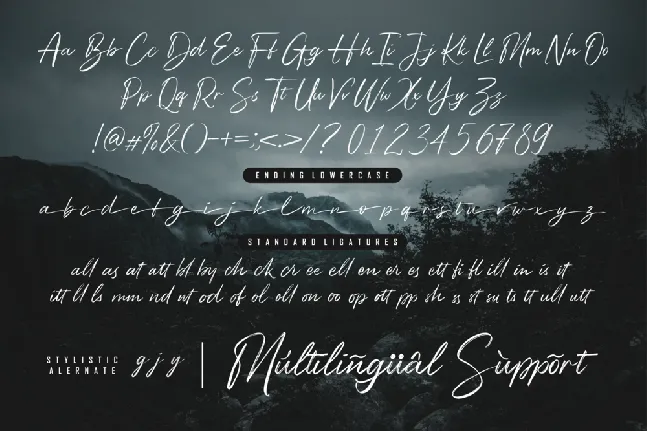 Aa Bb Cc Dd Ee Ff Gg Hh Ii Jj Kk Ll Mm Nn Oo
Pp Qq Rr Ss Tt Uu Vv Ww Xx Yy Zz
!@#%&()-+=:;<>/? 0123456789
ENDING LOWERCASE
a b c d e f g i j k l m n o p q r s t u v w x y z
STANDARD LIGATURES
all as at att bl by ch ck cr ee ell en er es ett fi fl ill in is it
itt ll ls mm nd nt od of ol oll on oo op ott pp sh ss st su ts tt ull utt
STYLISTIC ALERNATE
g j y
Múltiliñgüâl Sùppõrt